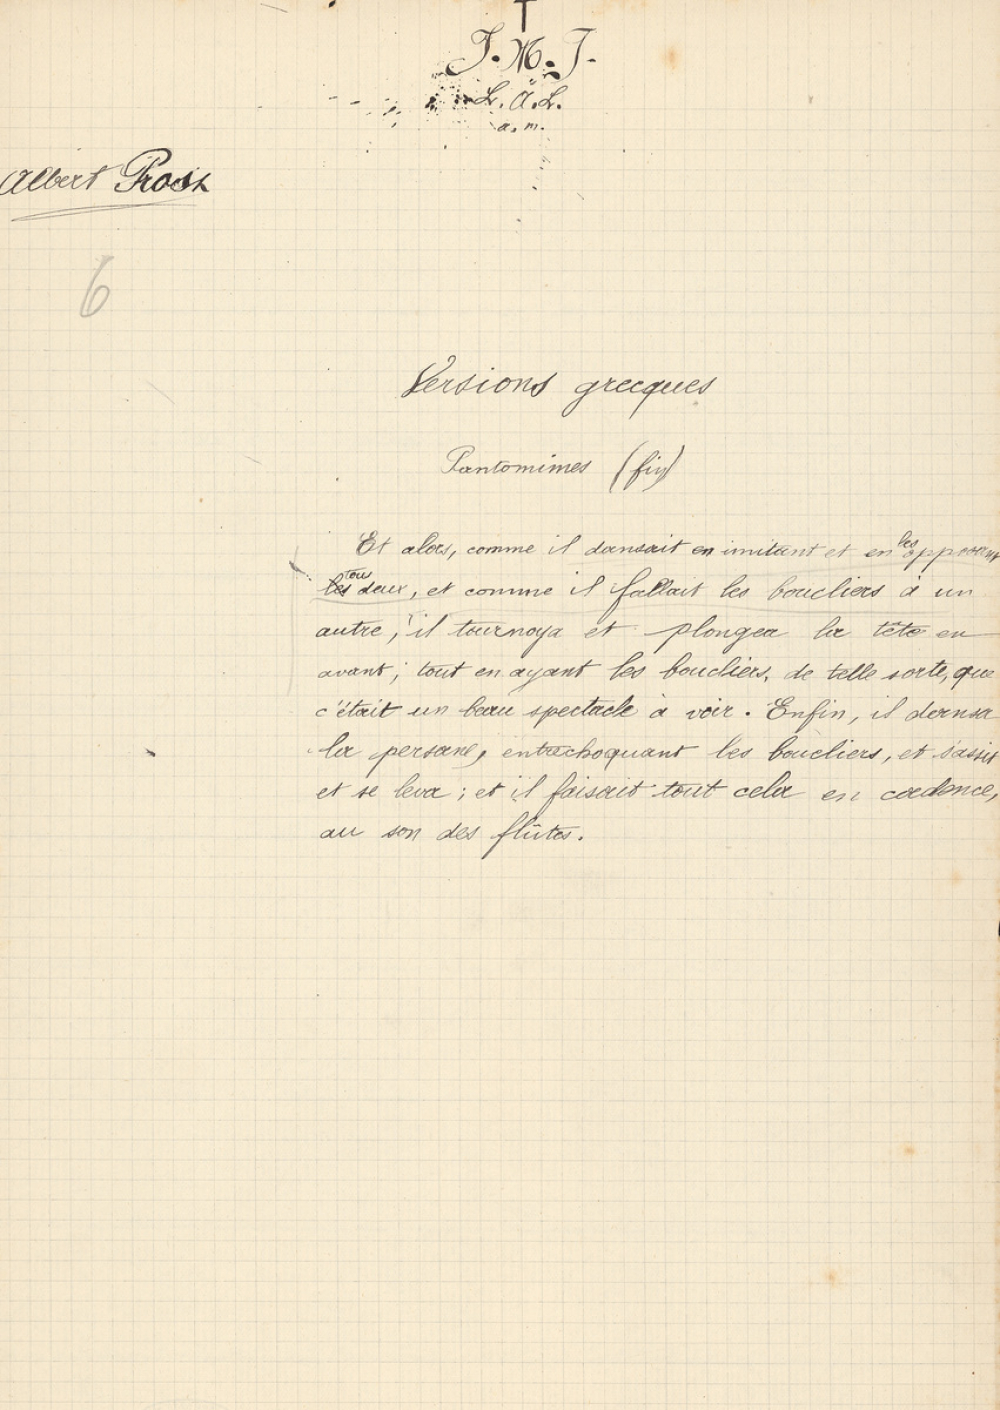 J. M. J.
L. A. L.
a. m.
Albert Prost
6
Versions grecques
Pantomimes (fin)
Et alors, comme il dansait en imitant et en les opposant
tous
les deux, et comme il fallait les boucliers à un
autre, il tournoya et plongea la tête en
avant ; tout en ayant les boucliers, de telle sorte, que
c'était un beau spectacle à voir. Enfin, il dansa
la persane, entrechoquant les boucliers, et s'assit
et se leva ; et il faisait tout cela en cadence,
au son des flûtes.